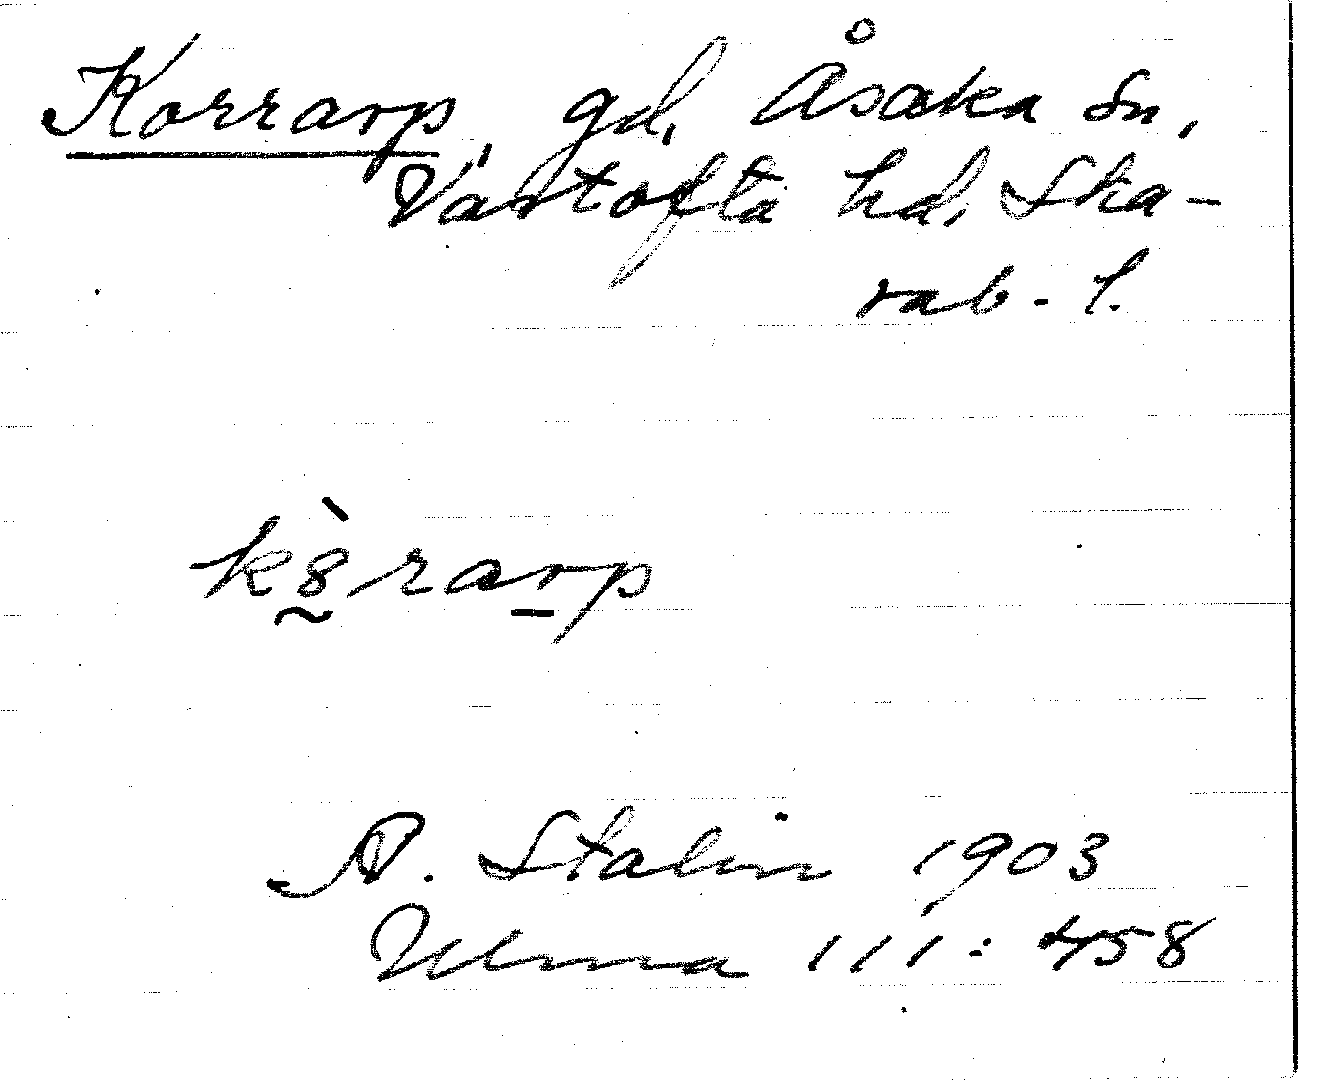 Korrarp, gd, Åsaka sn,
Vartofta hd, Ska-
rab. l.
k8̀rarp
A. Stalin 1903
Ulma 111:458